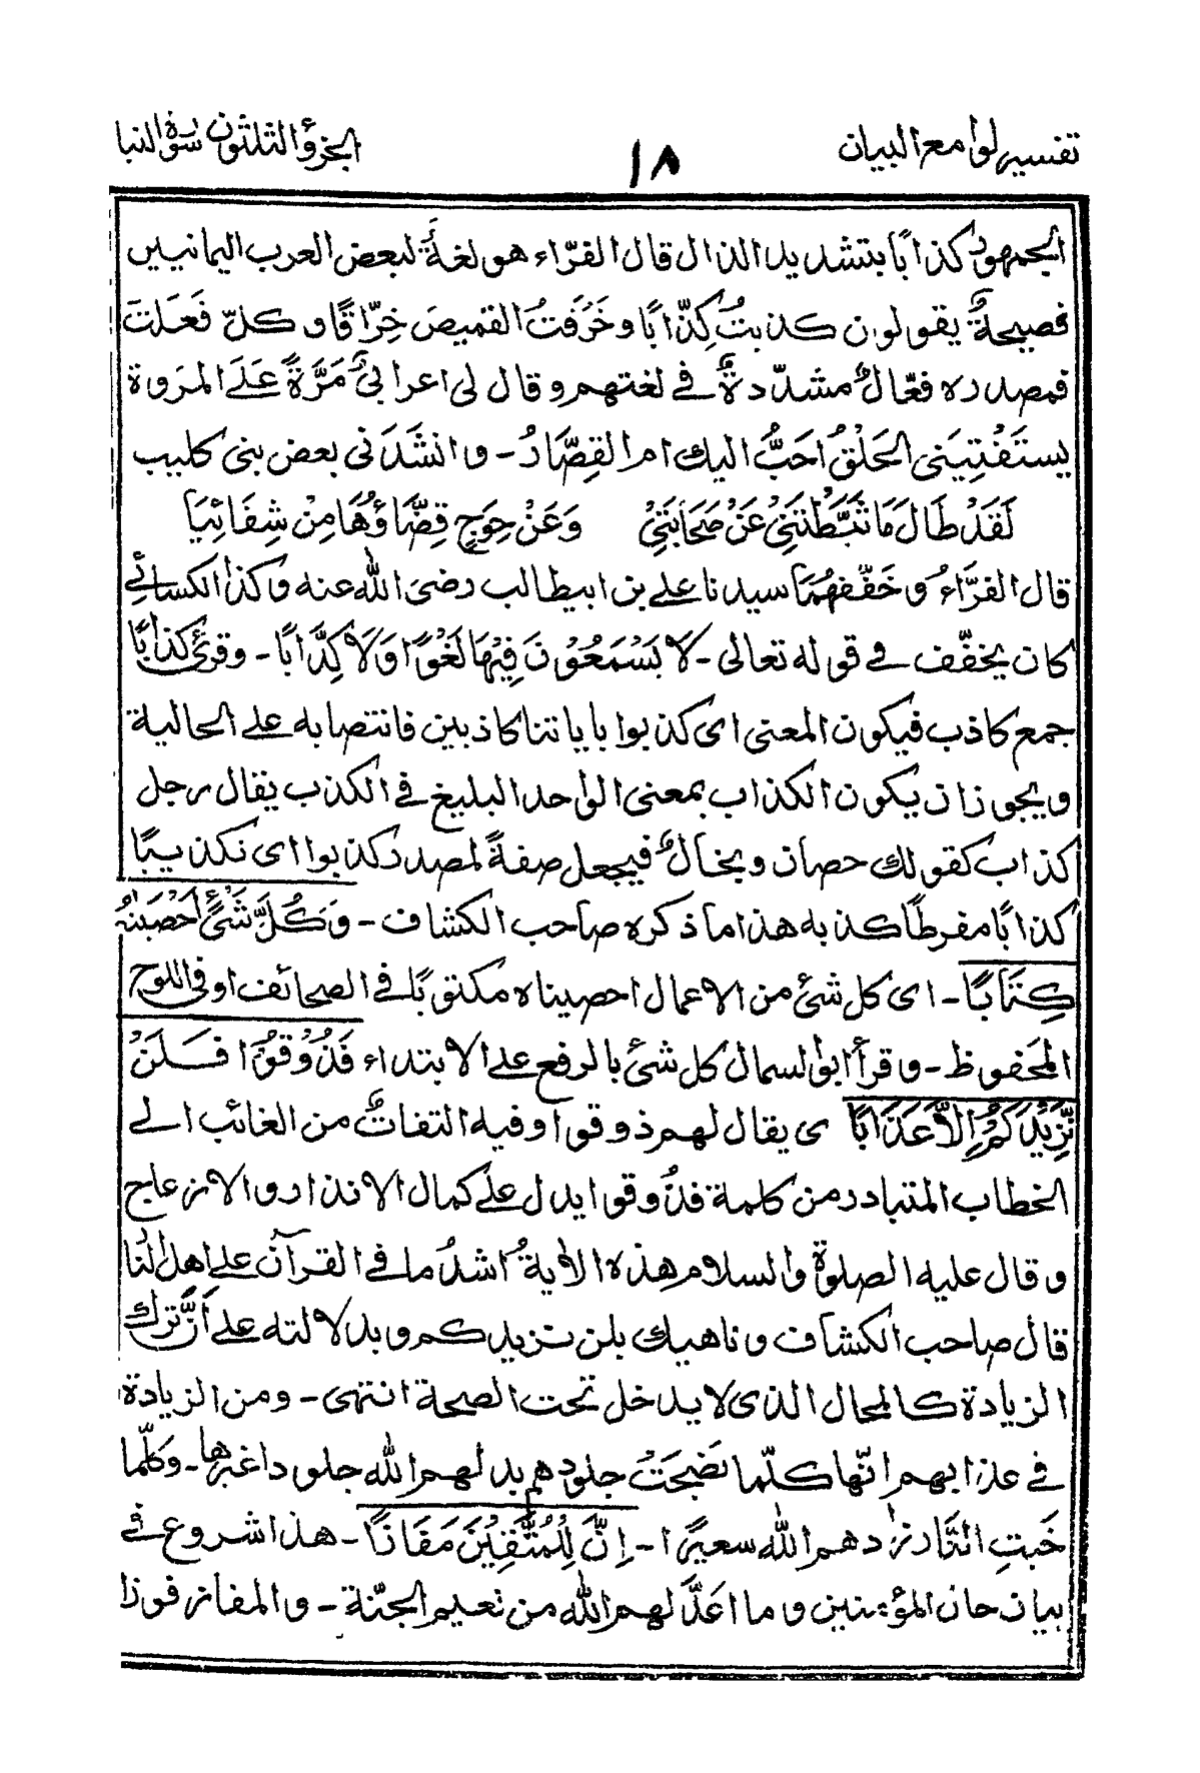 تفسير لوامع البيان ١٨ الجزؤ الثلثون سورة النبا
الجمهور كذابًا بتشديد الذال قال الفرّاء هو لغةٌ لبعض العرب اليمانيين
فصيحةٌ يقولون كذبتُ كِذّابًا وخَرَقتُ القميصَ خِرّاقًا و كلّ فَعَلتَ
فمصدره فعّالٌ مشدّدةٌ في لغتهم وقال لى اعرابىٌ مَرَّةً عَلَى المَروة
يستَفْتِيَنى الحَلْقُ احَبُّ اليك ام القِصَّارُ - و انشَدَنى بعض بنى كليب
لَقَدْ طَالَ مَا ثَبَّطَتَنِىْ عَنْ صَحَابَتِىْ وَعَنْ حِوَجٍ قِضَّاؤُهَا مِنْ شِفَائِيَا
قال الفرَّاءُ و خَفّفهُمَا سيدنا على بن ابيطالب رضى الله عنه وكذا الكسائى
كان يخفّف في قوله تعالى - لَا يَسْمَعُوْنَ فِيْهَا لَغْوًا وَلَا كِذَّابًا - وقرئ كذابًا
جمع كاذب فيكون المعنى اى كذبوا باياتنا كاذبين فانتصابه على الحالية
ويجوز ان يكون الكذاب بمعنى الواحد البليغ في الكذب يقال رجل
كذاب كقولك حصان وبخالٌ فيجعل صفةً لمصدر كذبوا اى تكذيبًا
كذابًا مفرطًا كذبه هذا ما ذكره صاحب الكشاف - وَكُلَّ شَىْءٍ اَحْصَيْنٰهُ
كِتَابًا - اى كل شئ من الاعمال احصيناه مكتوبًا في الصحائف او فى اللوح
المَحفوظ - وقرأ ابوالسمال كل شئ بالرفع على الابتداء فَذُوْقُوْا فَلَنْ
نَّزِيْدَكُمْ اِلَّا عَذَابًا ى يقال لهم ذوقوا وفيه التفاتٌ من الغائب الى
الخطاب المتبادر من كلمة فذُوقوا يدل على كمال الانذار والازعاج
وقال عليه الصلوة والسلام هذه الاٰيةُ اشدُ ما في القرآن على اهل النا
قال صاحب الكشاف وناهيك بلن نزيدكم وبدلالته على أنَّ ترك
الزيادة كالمحال الذى لا يدخل تحت الصحة انتهى - ومن الزيادة
في عذابهم انّها كلّما نضِجَتْ جلودهم بدلهم الله جلودا غيرها - وكلّما
خَبتِ النَّار زادهم الله سعيرًا - اِنَّ لِلْمُتَّقِيْنَ مَفَازًا - هذا شروع في
بيان حان المؤمنين وما اعَدَّ لهم الله من نعيم الجنّة - والمفاز فوزا